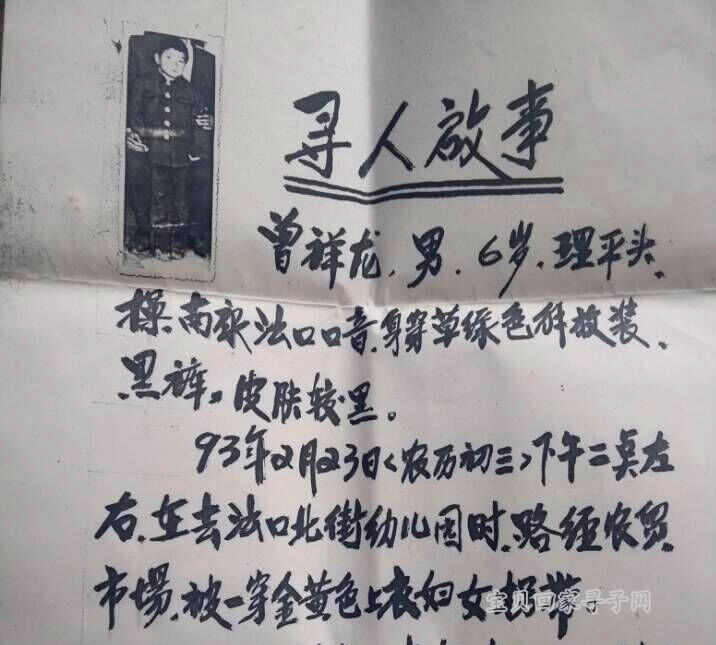 寻人啟事
曾祥龙、男、6岁、理平头、
操南法口口音、身穿草绿色解放装、
黑裤。皮肤较黑。
93年2月23日<农历初三>下午二点左
右、在去法口北街幼儿园时、路经农贸
市場、被一穿金黄色上衣妇女拐带。
宝贝回家寻子网